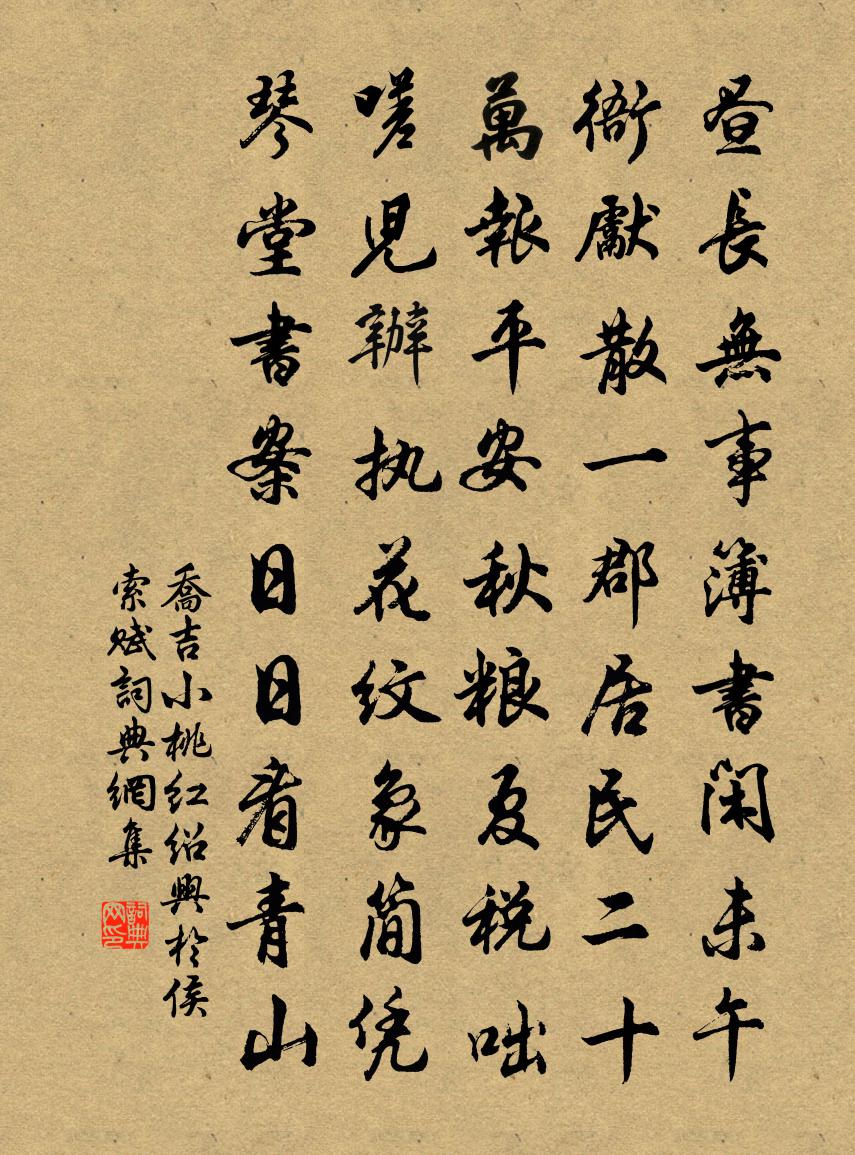 昼長無事簿書閑未午
衙獻散一郡居民二十
萬報平安秋粮夏税咄
嗟児辦执花纹象简凭
琴堂書案日日看青山
喬吉小桃红绍興於侯
索赋詞典網集
詞典网印